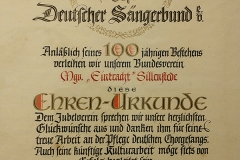 Deutscher Sängerbund e.V.
Anläßlich seines 100 jährigen Bestehens
verleihen wir unserem Bundesverein
Mgv. „Eintracht" Sillenstede
diese
Ehren-Urkunde
Dem Jubelverein sprechen wir unsere herzlichsten
Glückwünsche aus und danken ihm für seine
treue Arbeit an der Pflege deutschen Chorgesangs.
Auch seine künftige Kulturarbeit möge stets von